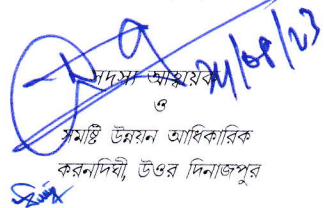 সদস্য আহ্বায়ক
ও
সমষ্টি উন্নয়ন আধিকারিক
করনদিঘী, উওর দিনাজপুর